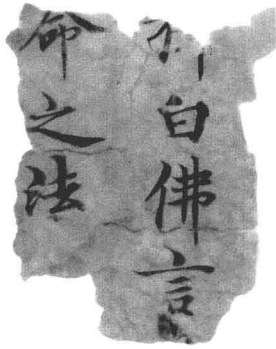 白佛言
命之法